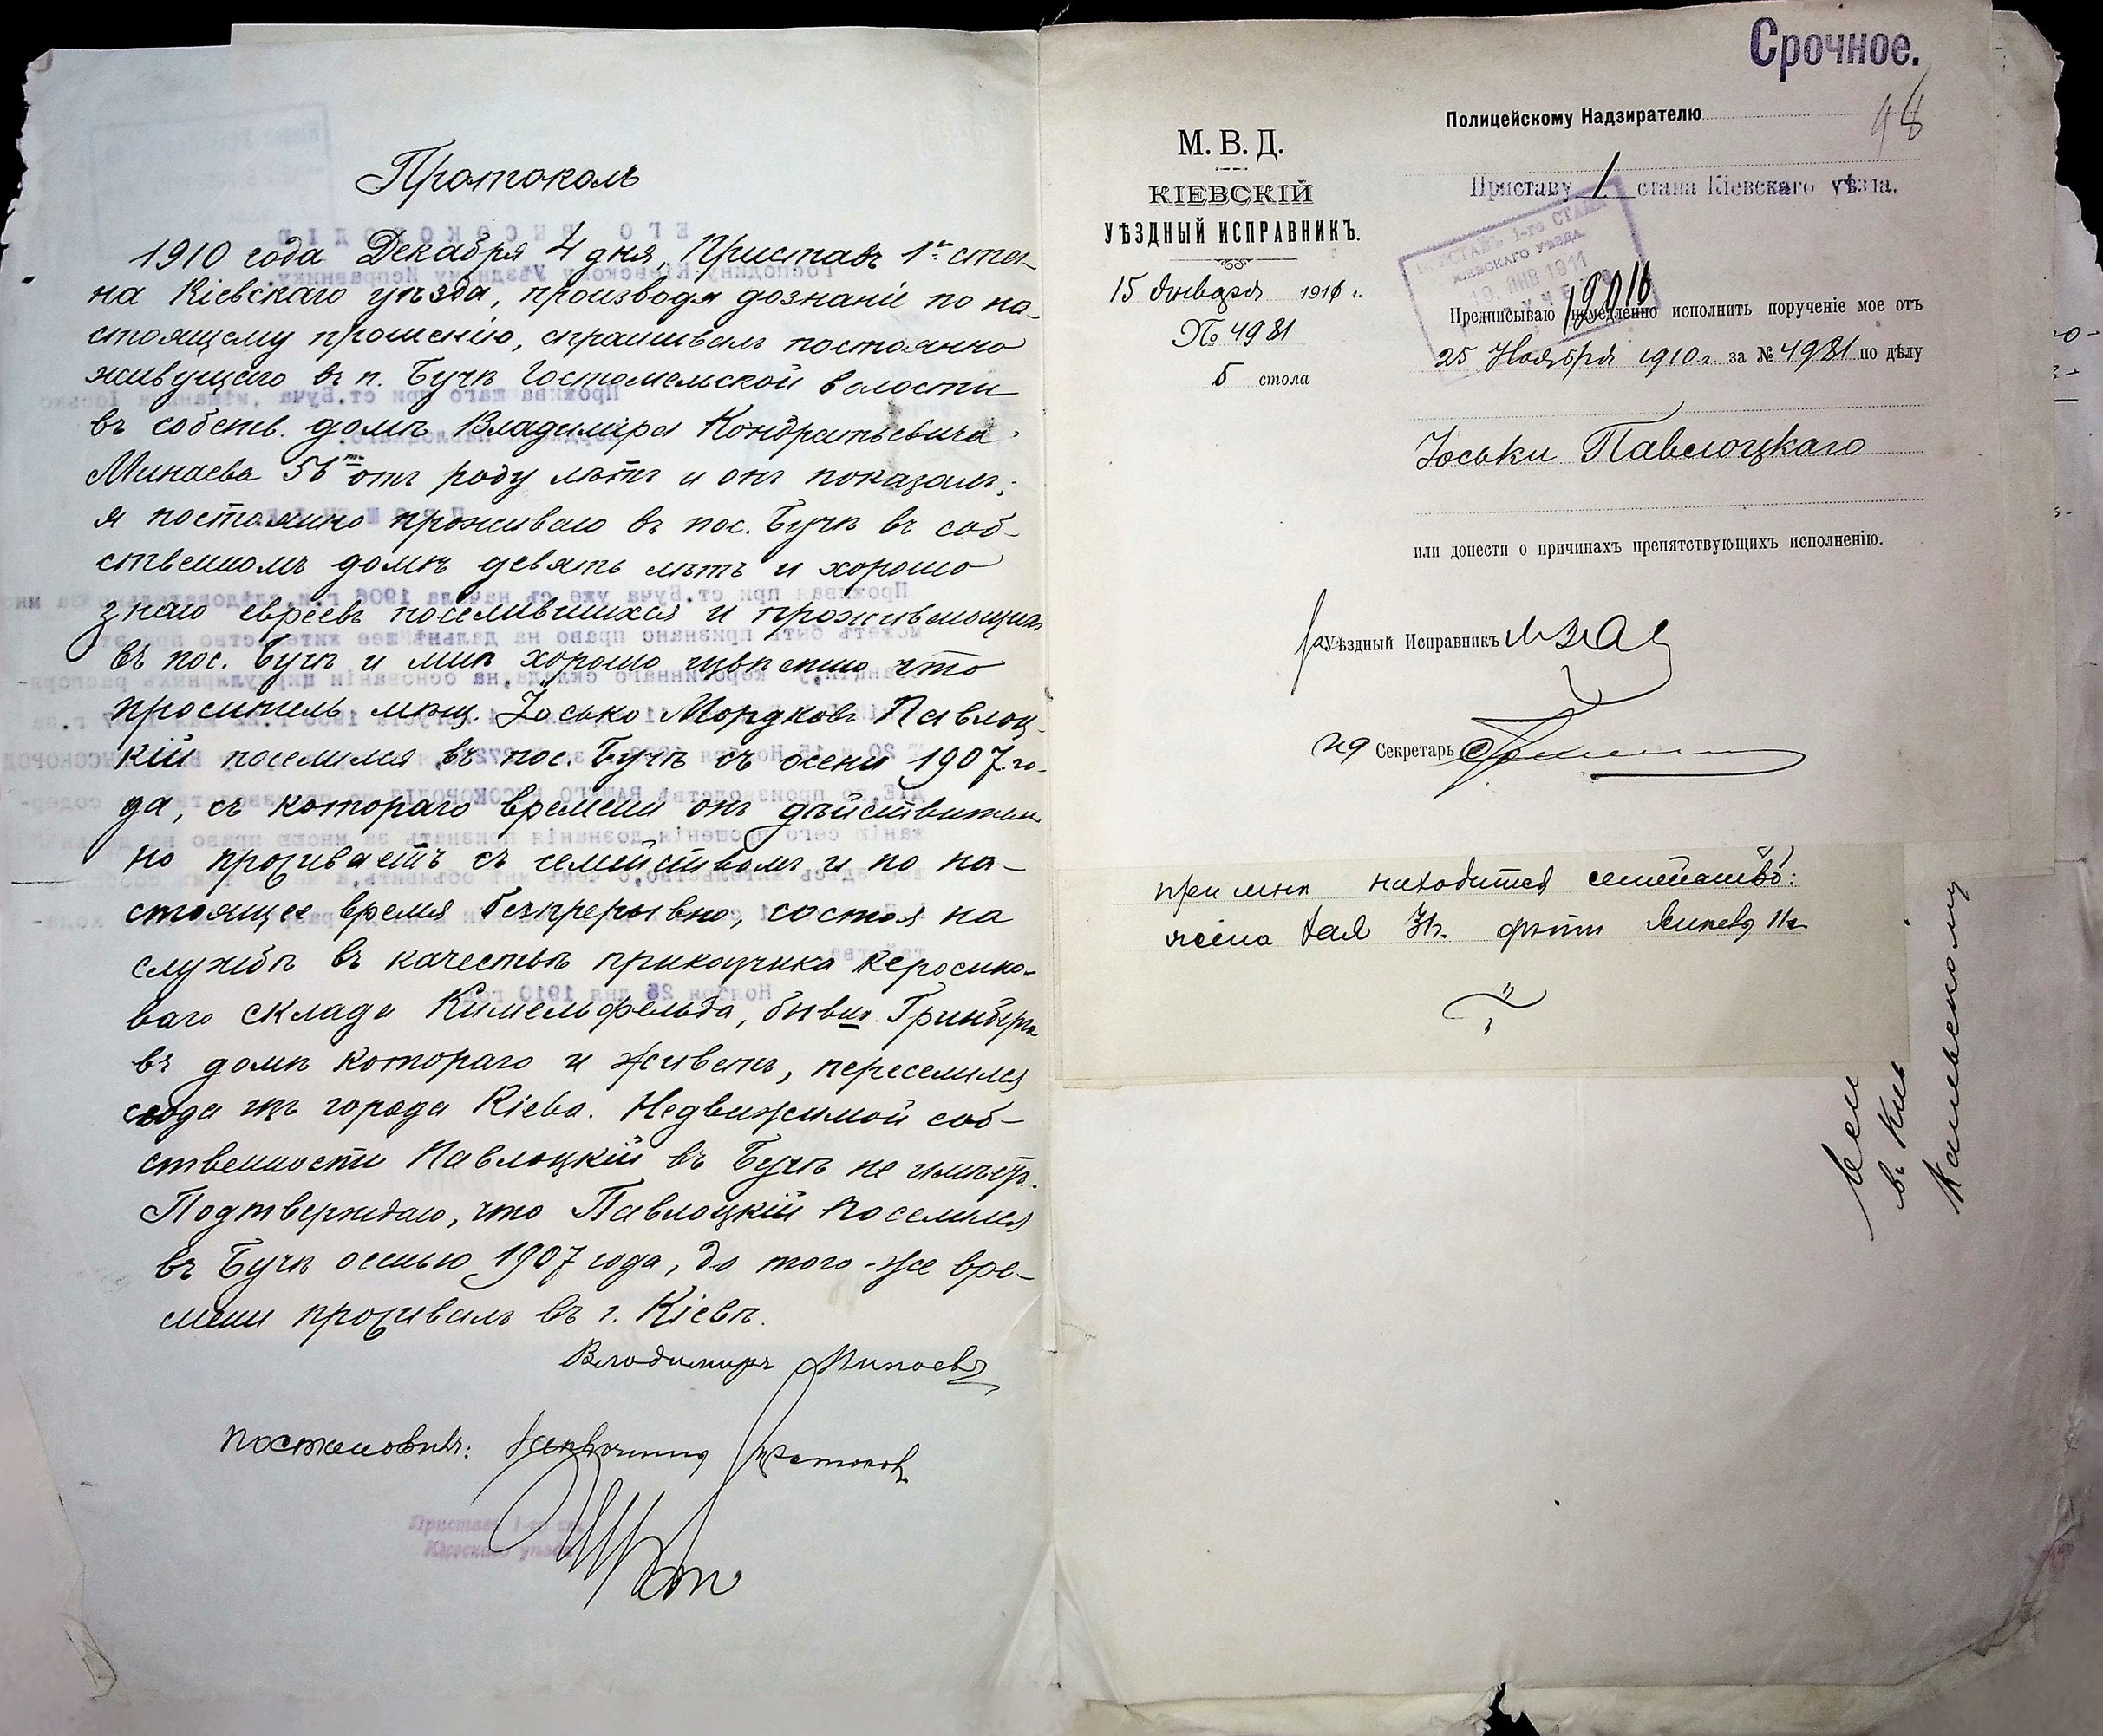 Протоколъ
1910 года Декабря 4 дня, Приставъ 1го ста-
на Кіевскаго уѣзда, производя дознаніе по на-
стоящему прошенію, спрашивалъ постоянно
живущаго въ п. Бучѣ Гостомельской волости
въ собств. домѣ Владиміра Кондратьевича
Минаева 56ти отъ роду лѣтъ и онъ показалъ:
я постоянно проживаю въ пос. Бучѣ въ соб-
ственномъ домѣ девять лѣтъ и хорошо
знаю евреевъ поселившихся и проживающихъ
въ пос. Бучѣ и мнѣ хорошо извѣстно что
проситель мѣщ. Іосько Мордковъ Павлоц-
кій поселился въ пос. Бучѣ съ осени 1907 го-
да, съ котораго времени онъ дѣйствитель
но проживаетъ съ семействомъ и по на-
стоящее время безпрерывно, состоя на
службѣ въ качествѣ приказчика керосино-
ваго склада Кимельфельда, бывш. Гринберга
въ домѣ котораго и живетъ, переселился
сюда изъ города Кіева. Недвижимой соб-
ственности Павлоцкій въ Бучѣ не имѣетъ.
Подтверждаю, что Павлоцкій поселился
въ Бучѣ осенью 1907 года, до того-же вре-
мени проживалъ въ г. Кіевѣ.
Владимиръ Минаевъ
Постановилъ:
Приставъ 1-го ст.
Кіевскаго уѣзда
Срочное.
98
М. В. Д.
КІЕВСКІЙ
УѢЗДНЫЙ ИСПРАВНИКЪ.
15 Января 1911 г.
№ 4981
5 стола
Полицейскому Надзирателю
Приставу 1 стана Кіевскаго уѣзда.
ПРИСТАВЪ 1-го СТАНА
КІЕВСКАГО УѢЗДА
19 ЯНВ 1911
Предписываю немедленно исполнить порученіе мое отъ
25 Ноября 1910 г. за № 4981 по дѣлу
Іоськи Павлоцкаго
или донести о причинахъ препятствующихъ исполненію.
За Уѣздный Исправникъ
Ид Секретарь
при мнѣ находится семейство:
жена